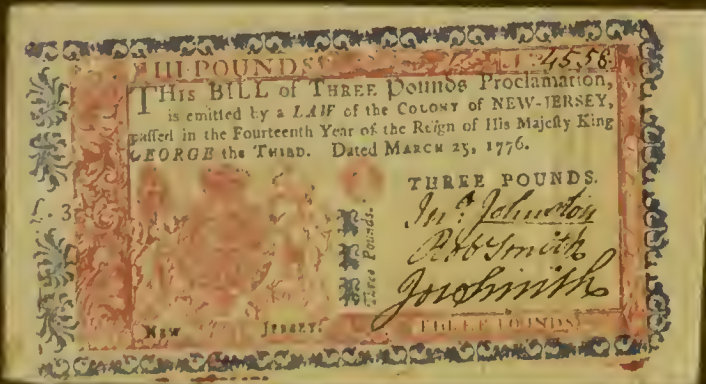 III POUNDS. 4558
THis BILL of THREE Pounds Proclamation,
is emitted by a LAW of the COLONY of NEW-JERSEY,
passed in the Fourteenth Year of the Reign of His Majesty King
GEORGE the THIRD. Dated MARCH 25, 1776.
THREE POUNDS.
Jnº. Johnston
Rob Smith
Jos Smith
Three Pounds.
NEW JERSEY.
THREE POUNDS